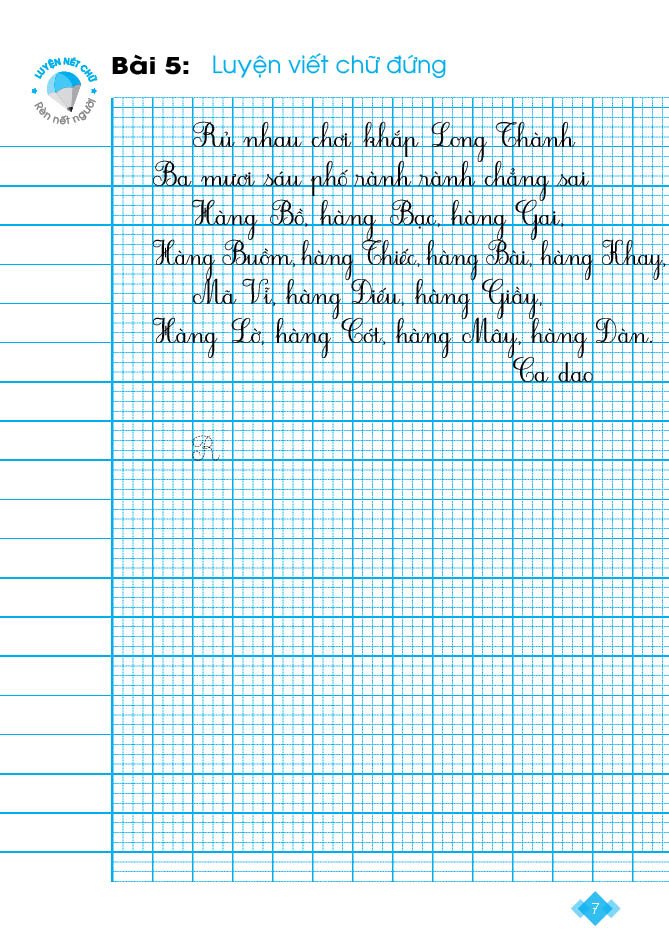 LUYỆN NÉT CHỮ
Rèn nết người
Bài 5: Luyện viết chữ đứng
Rủ nhau chơi khắp Long Thành
Ba mươi sáu phố rành rành chẳng sai
Hàng Bồ, hàng Bạc, hàng Gai,
Hàng Buồm, hàng Thiếc, hàng Bài, hàng Khay,
Mã Vĩ, hàng Điếu, hàng Giầy,
Hàng Lờ, hàng Cót, hàng Mây, hàng Đàn.
Ca dao
R
7